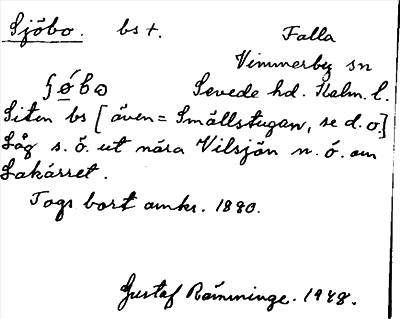 Sjöbo. bs +. Falla
Vimmerby sn
ʃǿ̲bo Sevede hd. Kalm. l.
Liten bs [även = Smällstugan, se d. o.]
Låg s. ö. ut nära Vilsjön n. ö. om
Lakärret.
Togs bort omkr. 1880.
Gustaf Rämminge. 1948.